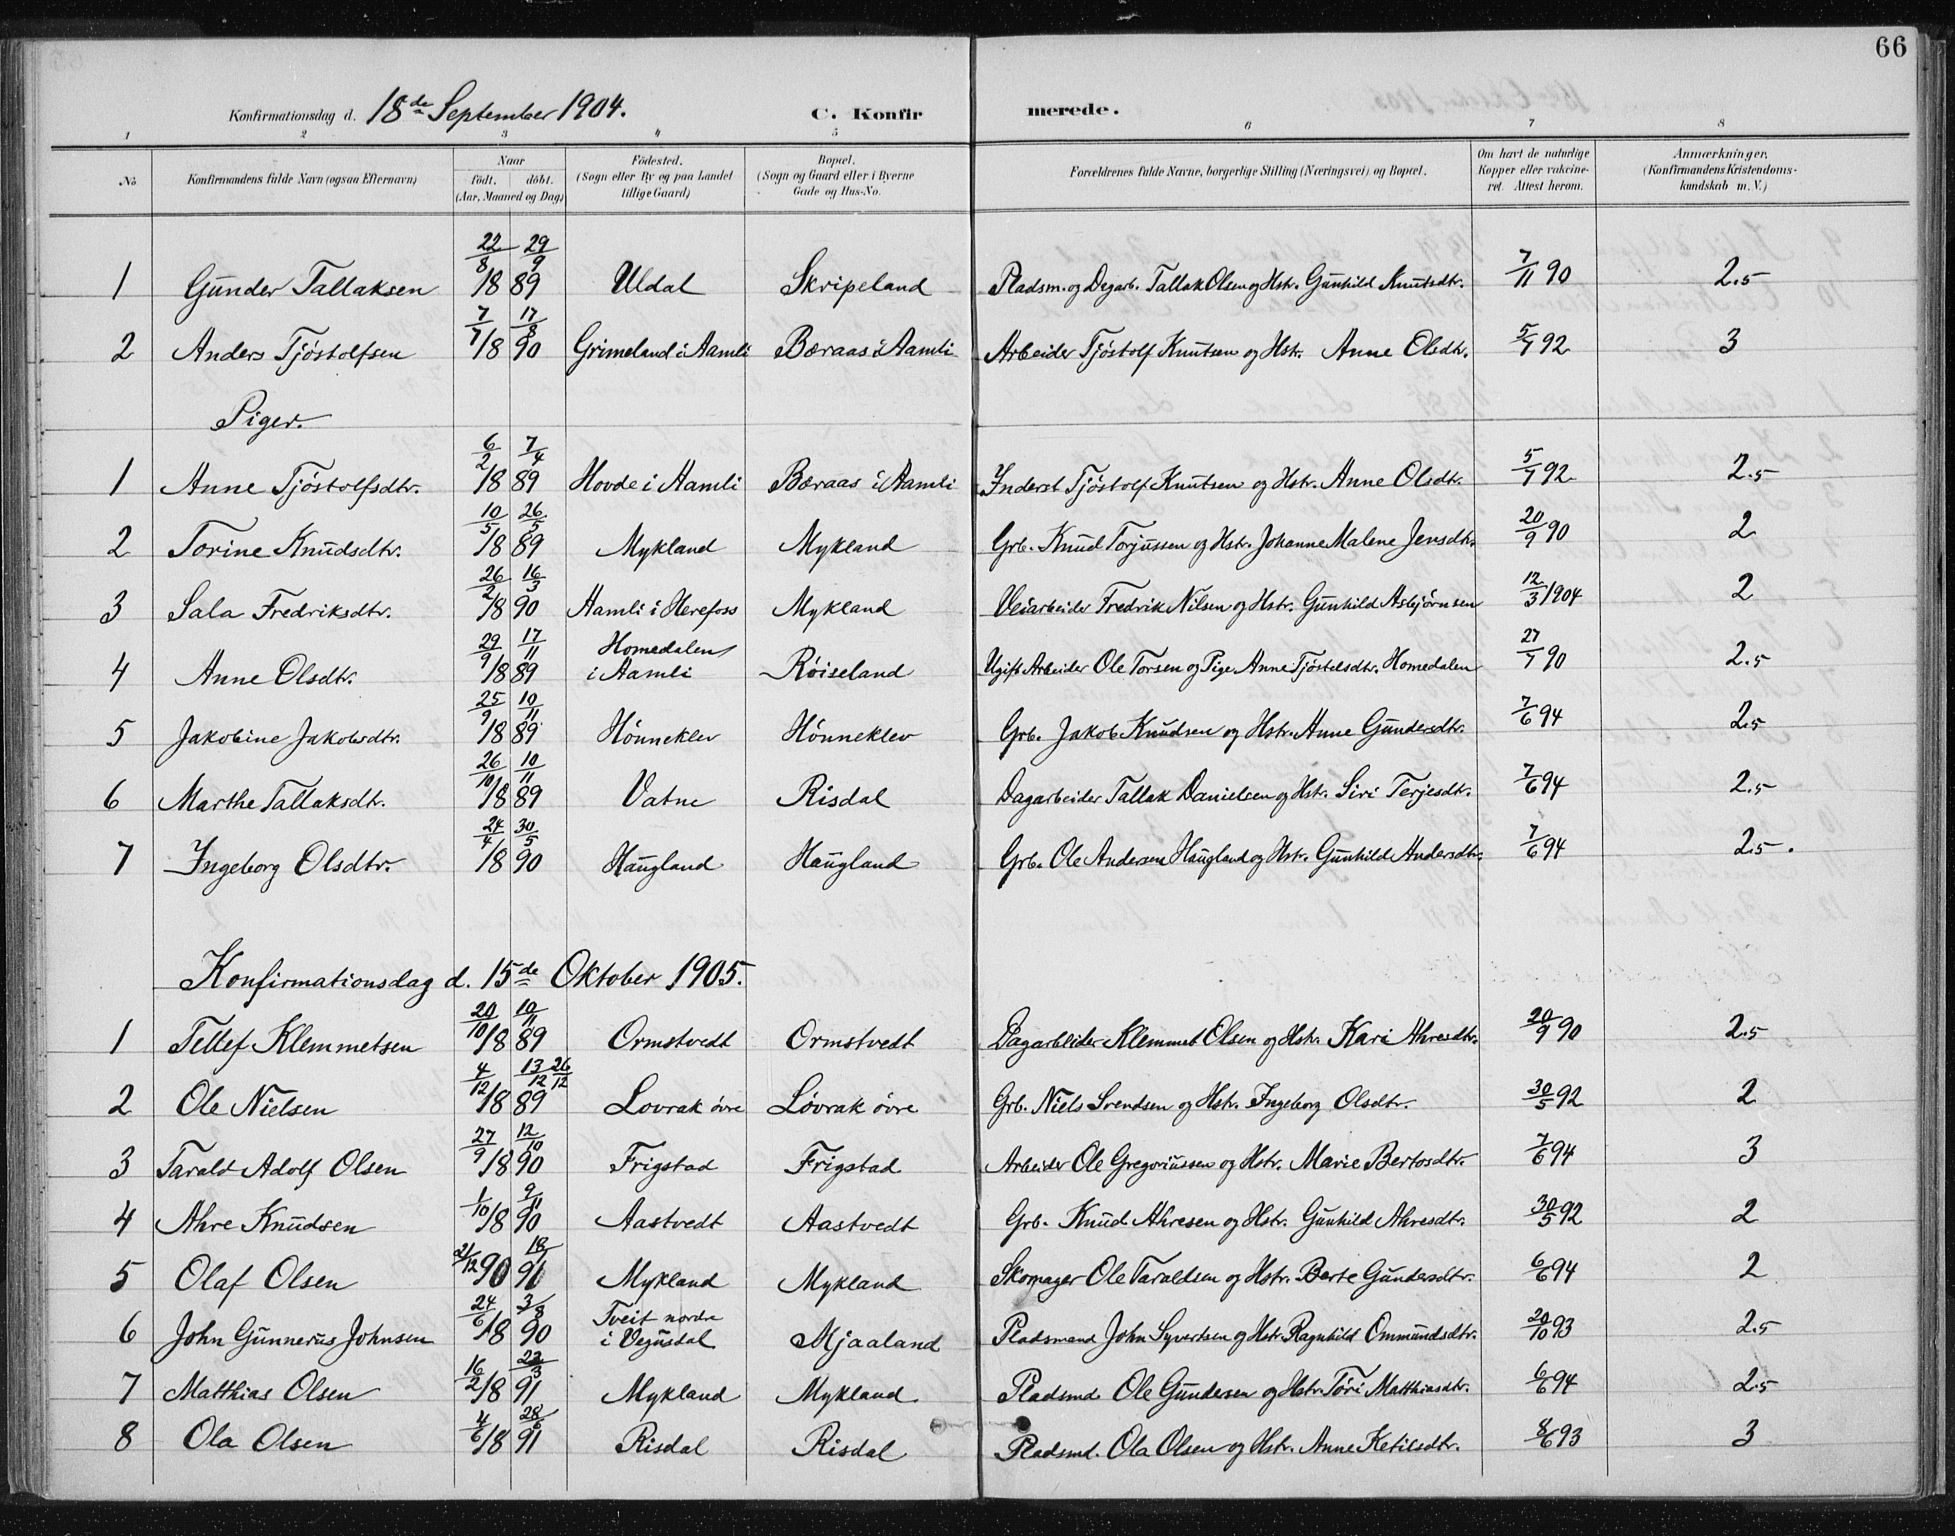 66
Konfirmationsdag d. 18de September 1904. C. Konfirmerede.
1 2 3 4 5 6 7 8
No Konfirmandens fulde Navn (ogsaa Efternavn) Naar født. døbt. (Aar, Maaned og Dag) Fødested. (Sogn eller By og paa Landet tillige Gaard) Bopæl. (Sogn og Gaard eller i Byerne Gade og Hus-No. Forældrenes fulde Navne, borgerlige Stilling (Næringsvei) og Bopæl. Om havt de naturlige Kopper eller vakcineret. Attest herom. Anmærkninger. (Konfirmandens Kristendomskundskab m. V.)
1 Gunder Tallaksen 22/8 29/9 1889 Uldal Skripeland Pladsm. og Dagarb. Tallak Olsen og Hstr. Gunhild Knutsdtr. 7/11 90 2.5
2 Anders Tjöstolfsen 7/7 17/8 1890 Grimeland i Aamli Bæraas i Aamli Arbeider Tjöstolf Knutsen og Hstr. Anne Olsdtr. 5/7 92 3
Piger.
1 Anne Tjöstolfsdtr. 6/2 7/4 1889 Hovde i Aamli Bæraas i Aamli Inderst Tjöstolf Knutsen og Hstr. Anne Olsdtr. 5/7 92 2.5
2 Torine Knudsdtr. 10/5 26/5 1889 Mykland Mykland Grb. Knud Torjussen og Hstr. Johanne Malene Jensdtr. 20/9 90 2
3 Sala Fredriksdtr. 26/2 16/3 1890 Aamli i Herefoss Mykland Veiarbeider Fredrik Nilsen og Hstr. Gunhild Asbjörnsen 12/3 1904 2
4 Anne Olsdtr. 29/9 17/11 1889 Homedalen i Aamli Röiseland Ugift Arbeider Ole Torsen og Pige Anne Tjöstelsdtr. Homedalen 27/7 90 2.5
5 Jakobine Jakobsdtr. 25/9 10/11 1889 Hönneklev Hönneklev Grb. Jakob Knudsen og Hstr. Anne Gundersdtr. 7/6 94 2.5
6 Marthe Tallaksdtr. 26/10 10/11 1889 Vatne Risdal Dagarbeider Tallak Danielsen og Hstr. Siri Terjesdtr. 7/6 94 2.5
7 Ingeborg Olsdtr. 24/4 30/5 1890 Haugland Haugland Grb. Ole Andersen Haugland og Hstr. Gunhild Andersdtr. 7/6 94 2.5.
Konfirmationsdag d. 15de Oktober 1905.
1 Tellef Klemmetsen 20/10 10/11 1889 Ormstvedt Ormstvedt Dagarbeider Klemmet Olsen og Hstr. Kari Ahresdtr. 20/9 90 2.5
2 Ole Nielsen 4/12 13/12 26/12 1889 Lovrak övre Lövrak övre Grb. Niels Svendsen og Hstr. Ingeborg Olsdtr. 30/5 92 2
3 Tarald Adolf Olsen 27/9 12/10 1890 Frigstad Frigstad Arbeider Ole Gregoriussen og Hstr. Marie Bertosdtr. 7/6 94 3
4 Ahre Knudsen 1/10 9/11 1890 Aastvedt Aastvedt Grb. Knud Ahresen og Hstr. Gunhild Ahresdtr. 30/5 92 2
5 Olaf Olsen 21/12 90 18/1 91 Mykland Mykland Skomager Ole Taraldsen og Hstr. Berte Gundersdtr. 6/6 94 2
6 John Gunnerus Johnsen 24/6 3/8 1890 Tveit nordre i Vegusdal Mjaaland Pladsmand John Syvertsen og Hstr. Ragnhild Ommundsdtr. 20/10 93 2.5
7 Matthias Olsen 16/2 22/3 1891 Mykland Mykland Pladsmd. Ole Gundersen og Hstr. Töri Matthiasdtr. 6/6 94 2.5
8 Ola Olsen 4/6 28/6 1891 Risdal Risdal Pladsmd. Ola Olsen og Hstr. Anne Ketilsdtr. 8/6 93 3